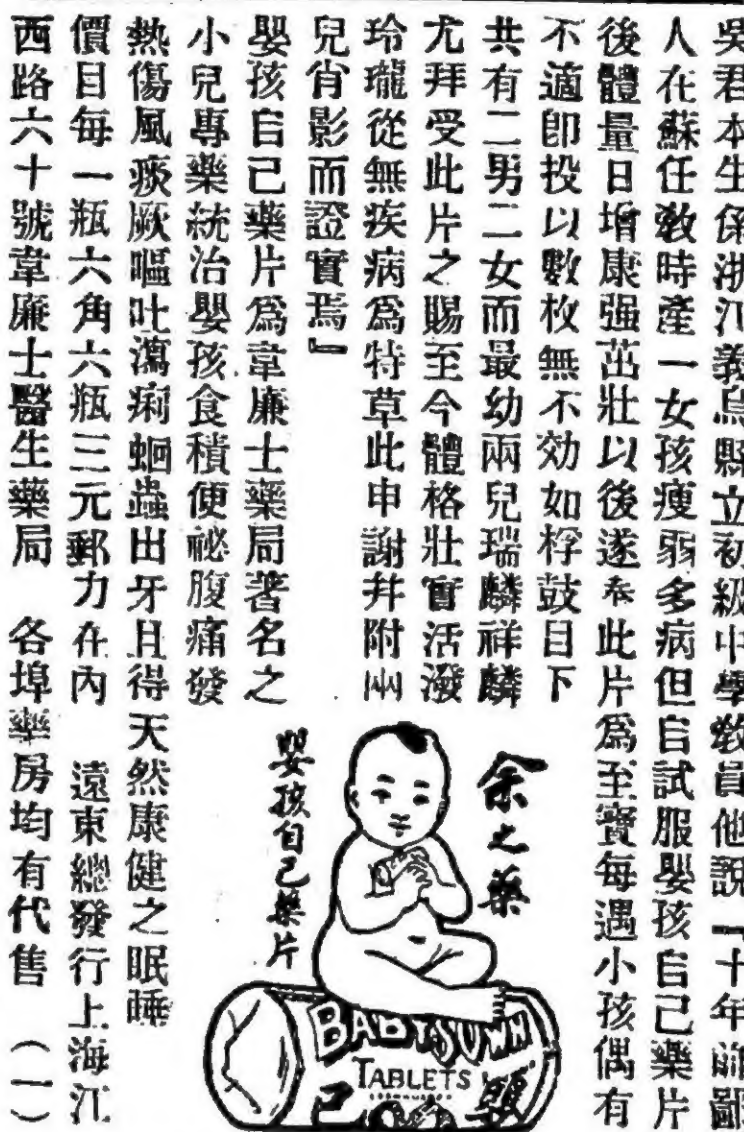 吳君本生係浙江義烏縣立初級中學敎員他說『十年前鄙
人在蘇任敎時產一女孩瘦弱多病但自試服嬰孩自己藥片
後體量日增康强茁壯以後遂奉此片爲至寶每遇小孩偶有
不適卽投以數枚無不効如桴鼓目下
共有二男二女而最幼兩兒瑞麟祥麟
尤拜受此片之賜至今體格壯實活潑
玲瓏從無疾病爲特草此申謝幷附兩
兒肖影而證實焉』
嬰孩自己藥片爲韋廉士藥局著名之
小兒專藥統治嬰孩食積便祕腹痛發
熱傷風痰厥嘔吐瀉痢蛔蟲出牙且得天然康健之眠睡
價目每一瓶六角六瓶三元郵力在內 遠東總發行上海江
西路六十號韋廉士醫生藥局 各埠藥房均有代售 (一)
余之藥
嬰孩自己藥片
BABY'S OWN
TABLETS
己